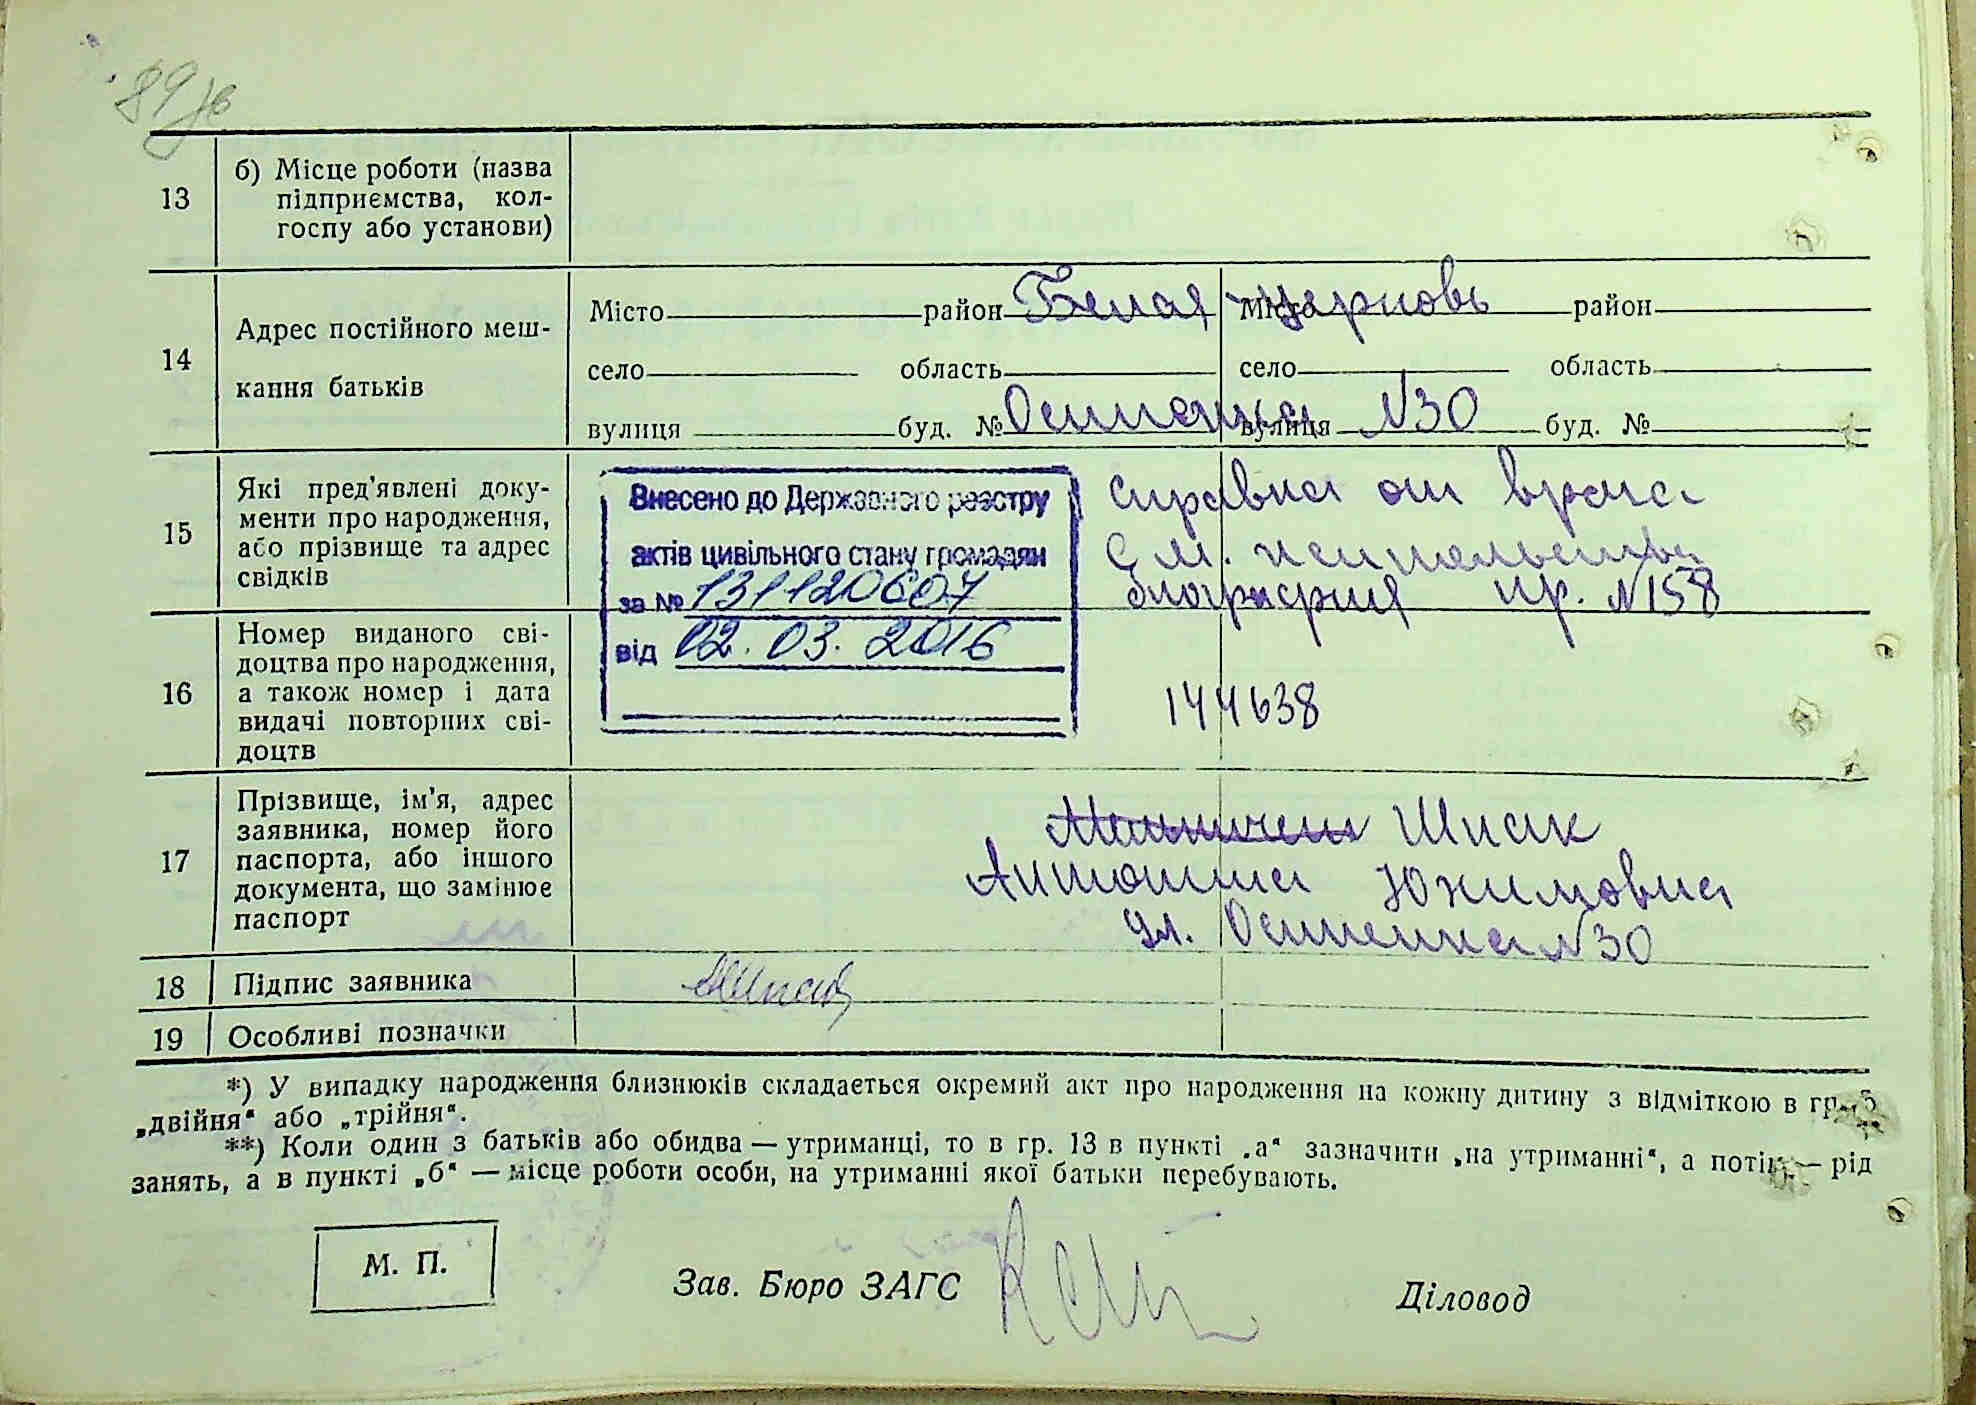 89зв
13
б) Місце роботи (назва
підприємства, кол-
госпу або установи)
14
Адрес постійного меш-
кання батьків
Місто район Белая Церковь Місто район
село область село область
вулиця буд. № вулиця №30 буд. №
15
Які пред'явлені доку-
менти про народження,
або прізвище та адрес
свідків
Внесено до Державного реєстру
актів цивільного стану громадян
за № 131120607
від 02.03.2016
справка от врача
с м.
пр. №158
16
Номер виданого сві-
доцтва про народження,
а також номер і дата
видачі повторних сві-
доцтв
144638
17
Прізвище, ім'я, адрес
заявника, номер його
паспорта, або іншого
документа, що замінює
паспорт
Шпак
Антонина Юхимовна
ул. №30
18 Підпис заявника
19 Особливі позначки
*) У випадку народження близнюків складається окремий акт про народження на кожну дитину з відміткою в гр. 5
„двійня“ або „трійня“.
**) Коли один з батьків або обидва — утриманці, то в гр. 13 в пункті „а“ зазначити „на утриманні“, а потім — рід
занять, а в пункті „б“ — місце роботи особи, на утриманні якої батьки перебувають.
М. П.
Зав. Бюро ЗАГС
Діловод